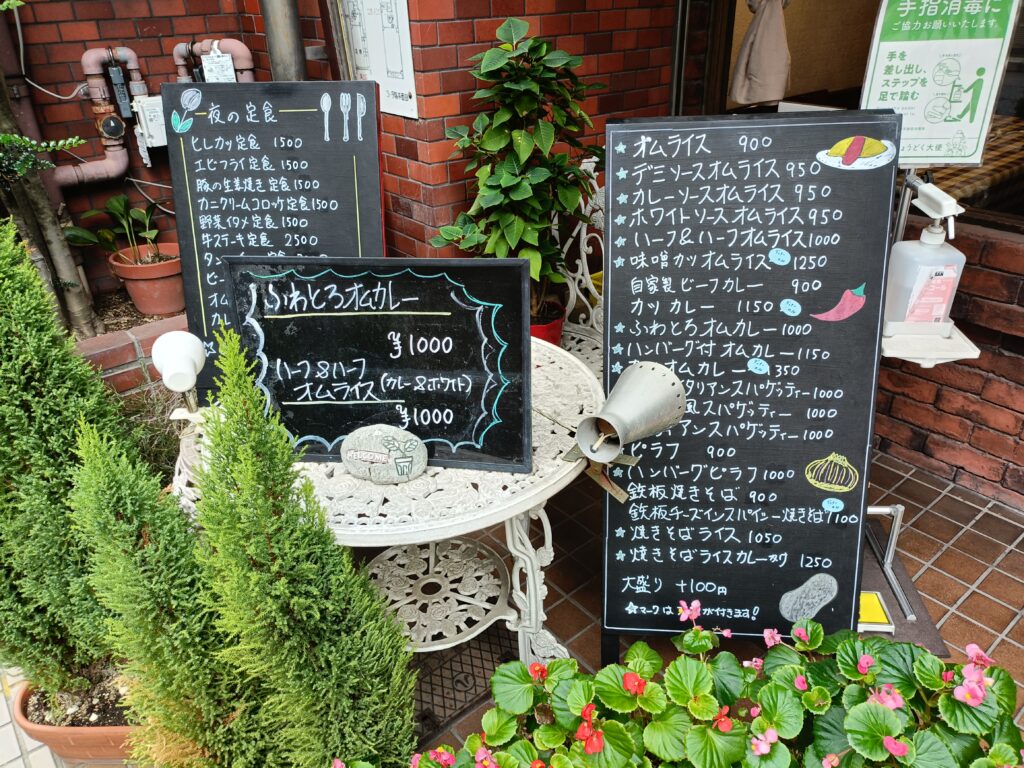 夜の定食
ヒレカツ定食 1500
エビフライ定食 1500
豚の生姜焼き定食 1500
カニクリームコロッケ定食 1500
野菜イタメ定食 1500
牛ステーキ定食 2500
タン
ビー
オム
カレ
ふわとろオムカレー
¥1000
ハーフ&ハーフ
オムライス(カレー&ホワイト)
¥1000
WELCOME
オムライス 900
デミソースオムライス 950
カレーソースオムライス 950
ホワイトソースオムライス 950
ハーフ&ハーフオムライス 1000
味噌カツオムライス 1250
自家製ビーフカレー 900
カツカレー 1150
ふわとろオムカレー 1000
ハンバーグ付オムカレー 1150
オムカレー 350
タリアンスパゲッティー 1000
風スパゲッティー 1000
アンスパゲッティー 1000
ピラフ 900
ハンバーグピラフ 1000
鉄板焼きそば 900
鉄板チーズインスパイシー焼きそば 1100
焼きそばライス 1050
焼きそばライスカレーがけ 1250
大盛り +100円
マークは が付きます!
手指消毒に
ご協力お願いいたします。
手を
差し出し、
ステップを
足で踏む
しょうどく大使